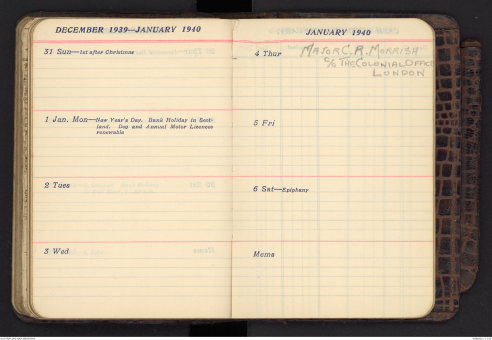 DECEMBER 1939—JANUARY 1940
31 Sun—1st after Christmas
1 Jan. Mon—New Year's Day. Bank Holiday in Scot-
land. Dog and Annual Motor Licences
renewable
2 Tues
3 Wed
JANUARY 1940
4 Thur MAJOR C. R. MORRISH
C/O THE COLONIAL OFFICE
LONDON
5 Fri
6 Sat—Epiphany
Mems